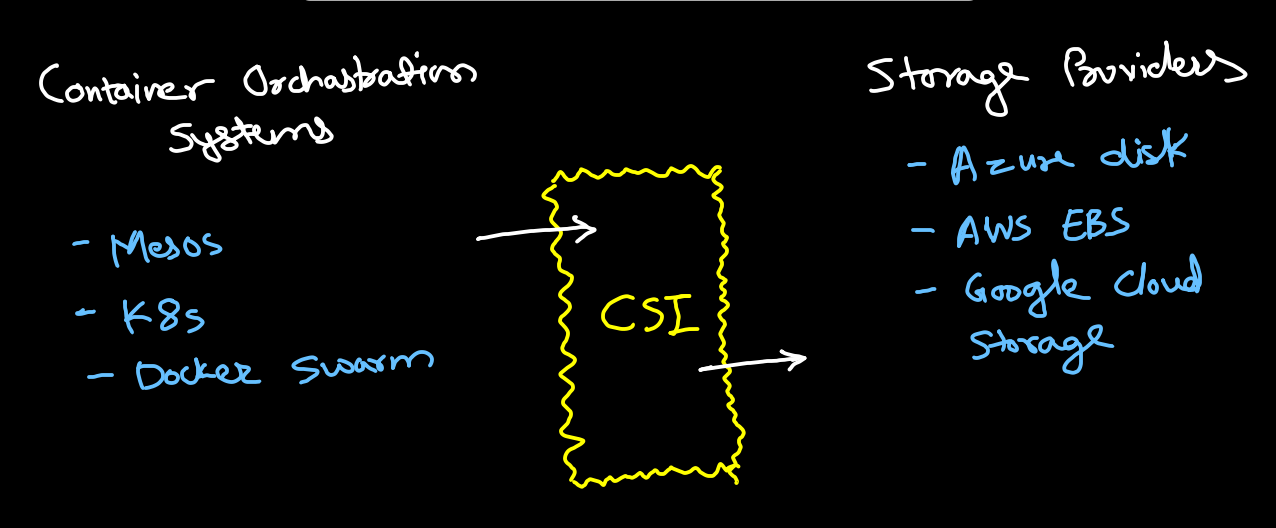 Container Orchastration
Systems
- Mesos
- K8s
- Docker Swarm
CSI
Storage Providers
- Azure disk
- AWS EBS
- Google Cloud
Storage